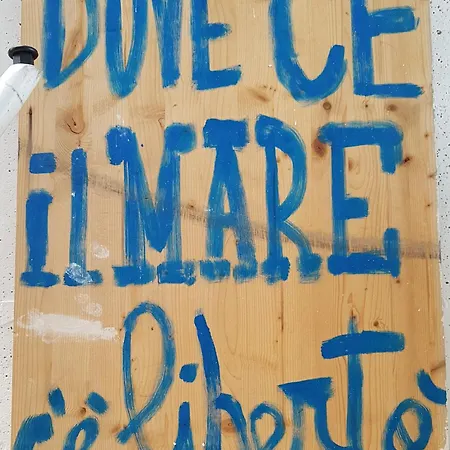 DOVE C'E
il MARE
c'è libertà